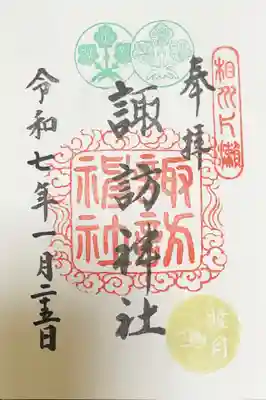 奉拝
相州片瀬
諏訪神社
諏訪神社
令和七年一月二十五日